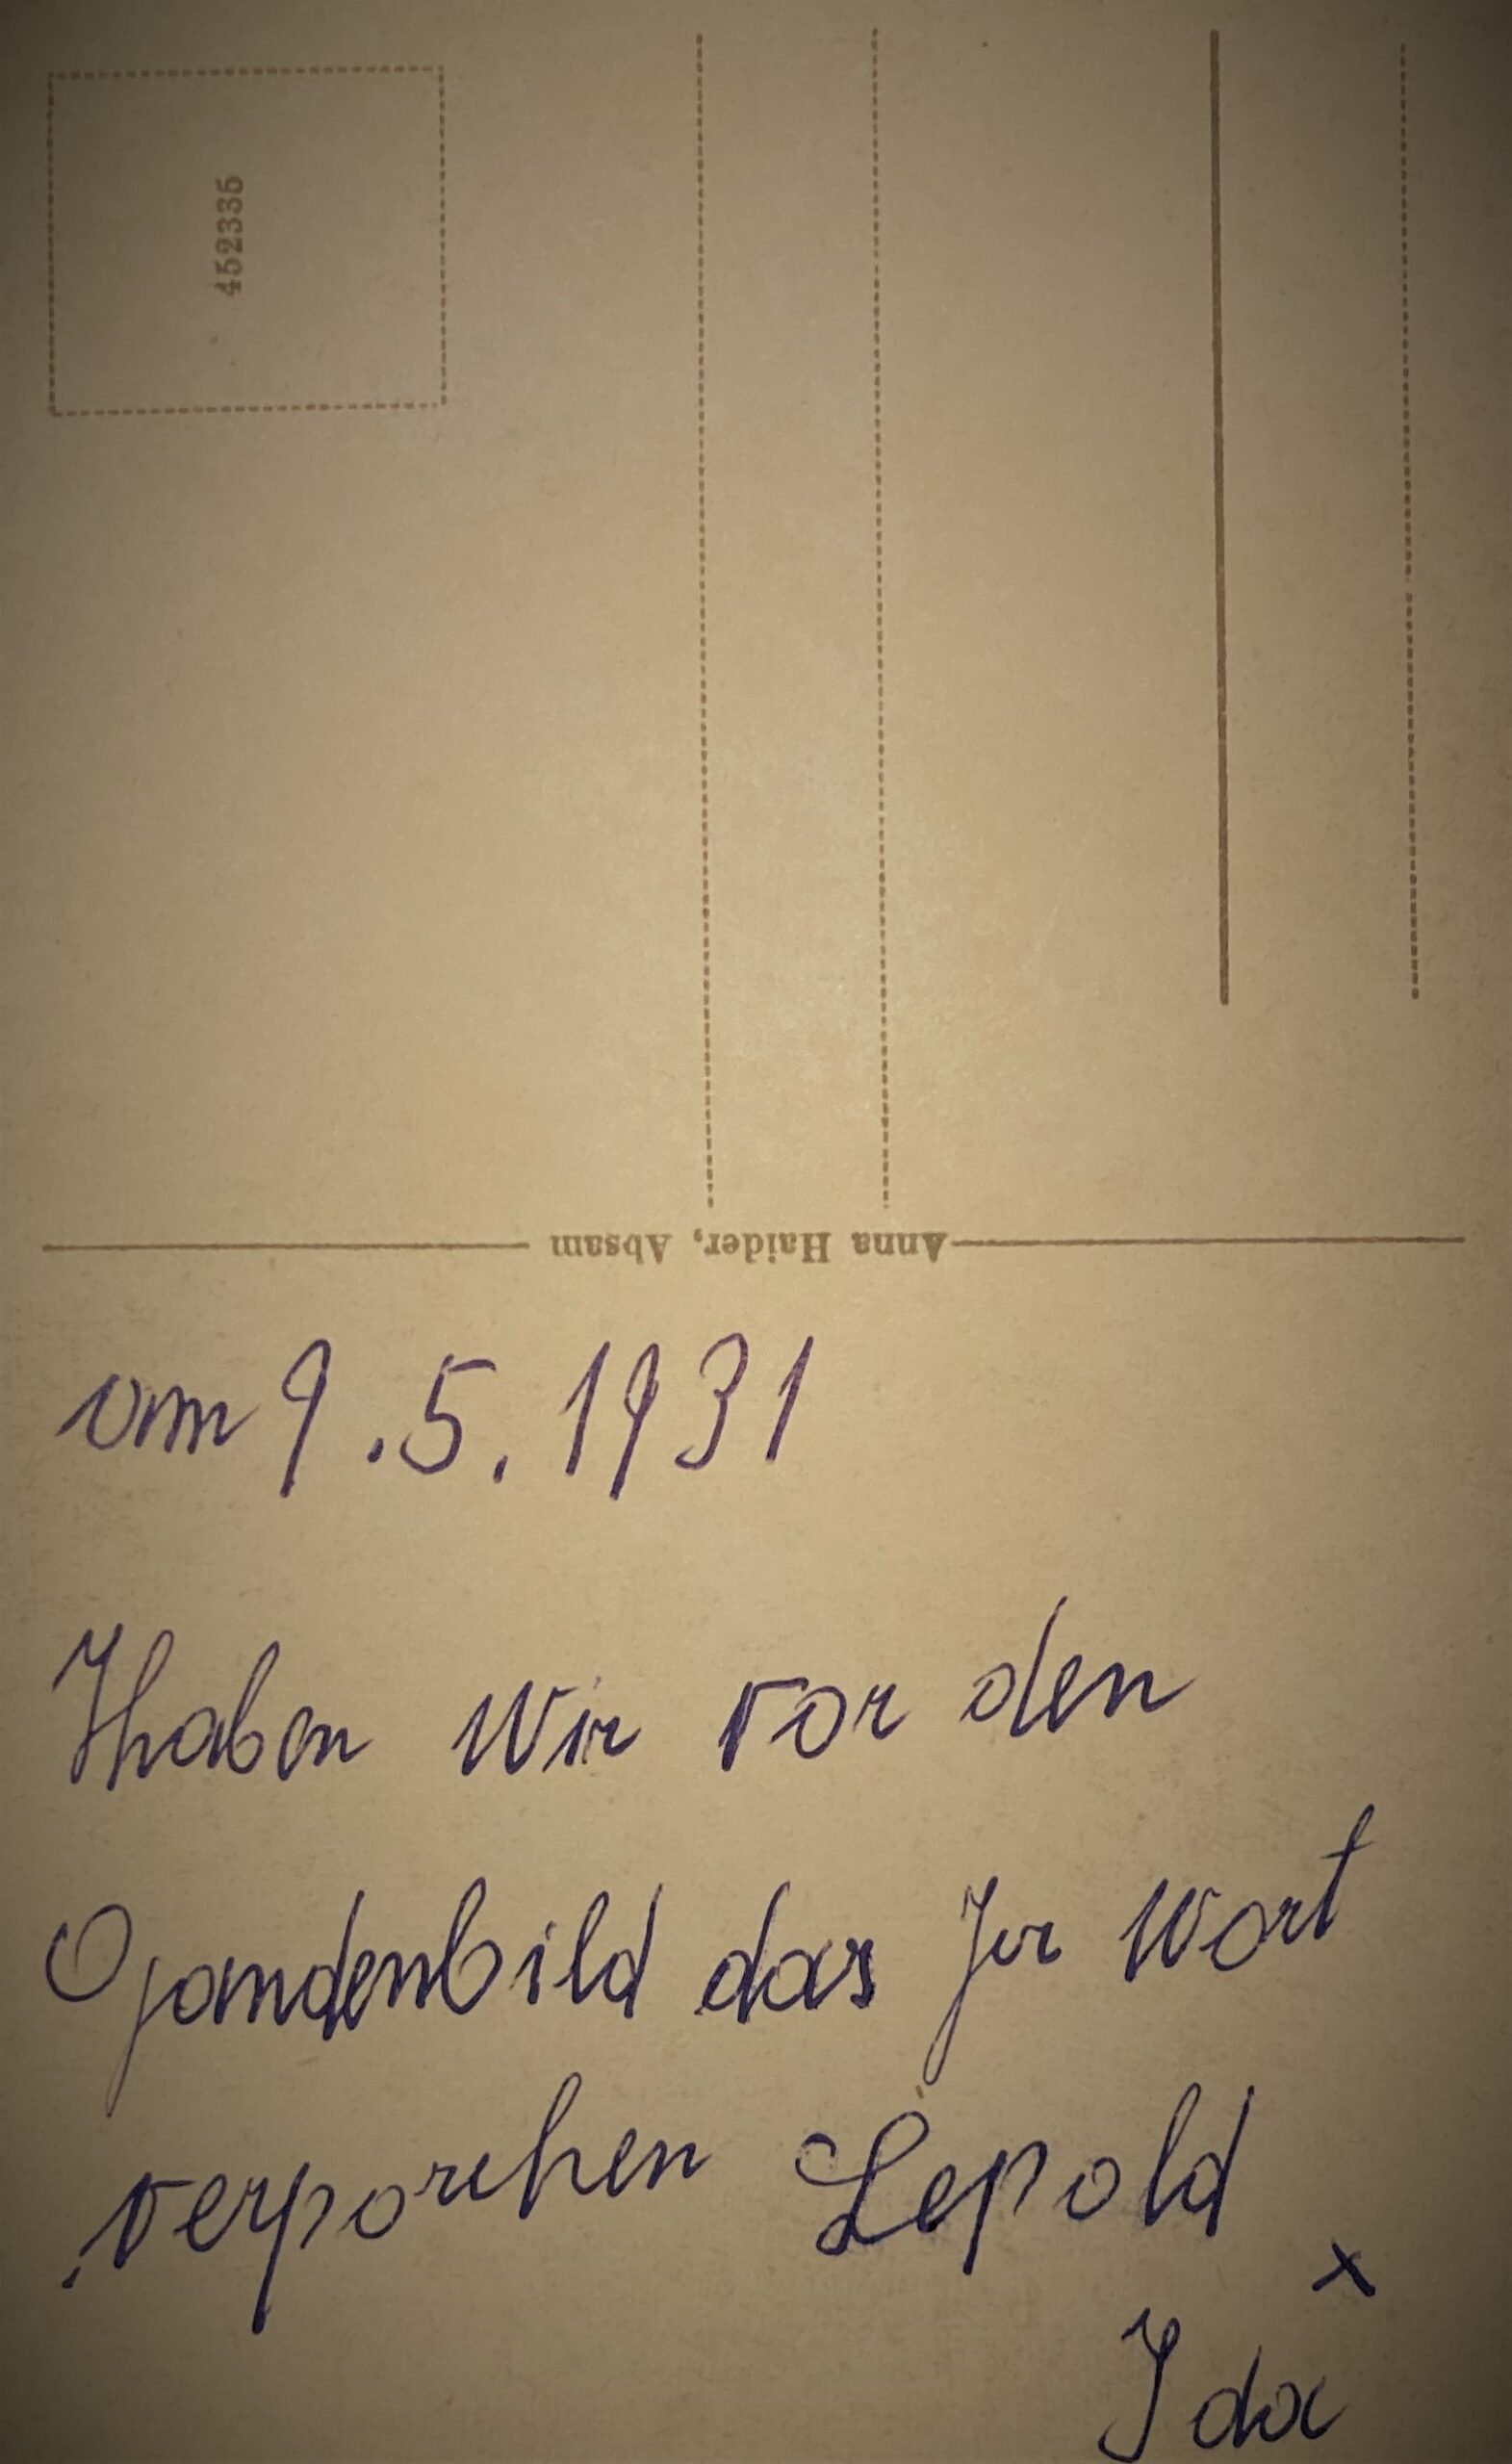 452335
Anna Haider, Absam
vom 9.5.1931
Haben wir vor den
Gnandenbild das Ja wort
verporchen Lepold
x
Ida